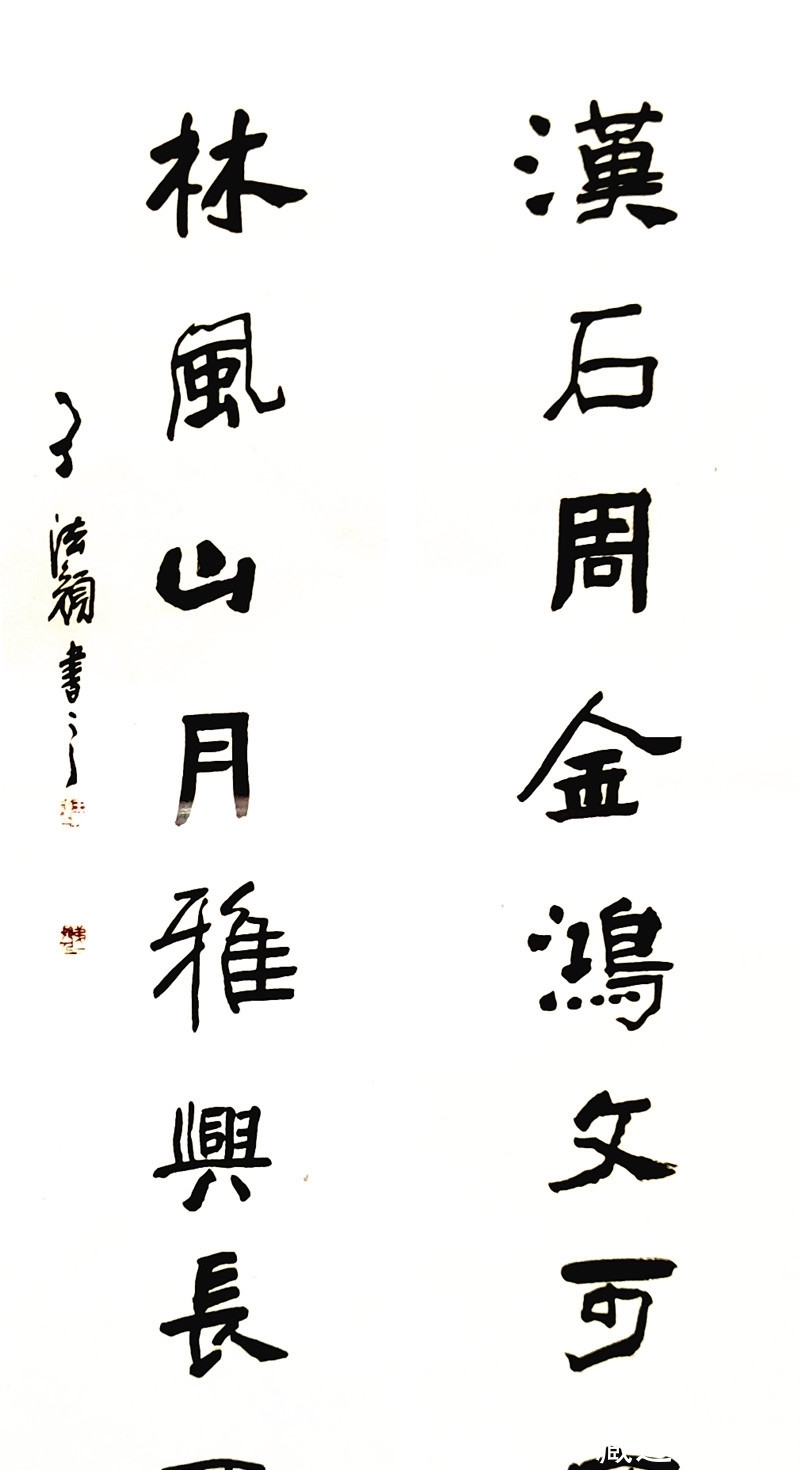 漢石周金鴻文可
林風山月雅興長
法穎書